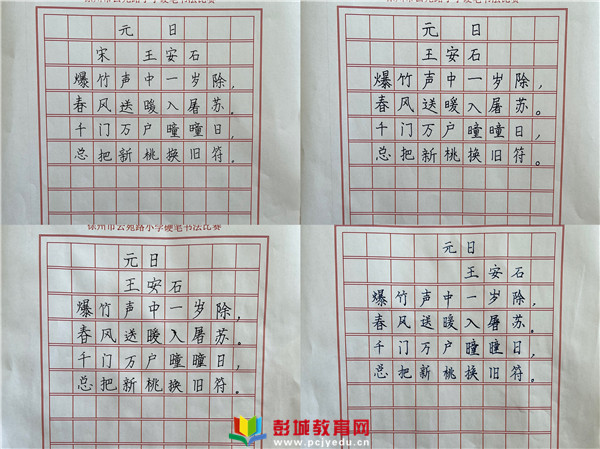 元 日
宋 王安石
爆竹声中一岁除，
春风送暖入屠苏。
千门万户曈曈日，
总把新桃换旧符。
元 日
王安石
爆竹声中一岁除，
春风送暖入屠苏。
千门万户曈曈日，
总把新桃换旧符。
徐州市云苑路小学硬笔书法比赛
元日
王安石
爆竹声中一岁除，
春风送暖入屠苏。
千门万户曈曈日，
总把新桃换旧符。
元日
王安石
爆竹声中一岁除，
春风送暖入屠苏。
千门万户曈曈日，
总把新桃换旧符。
彭城教育网
www.pcjyedu.cn